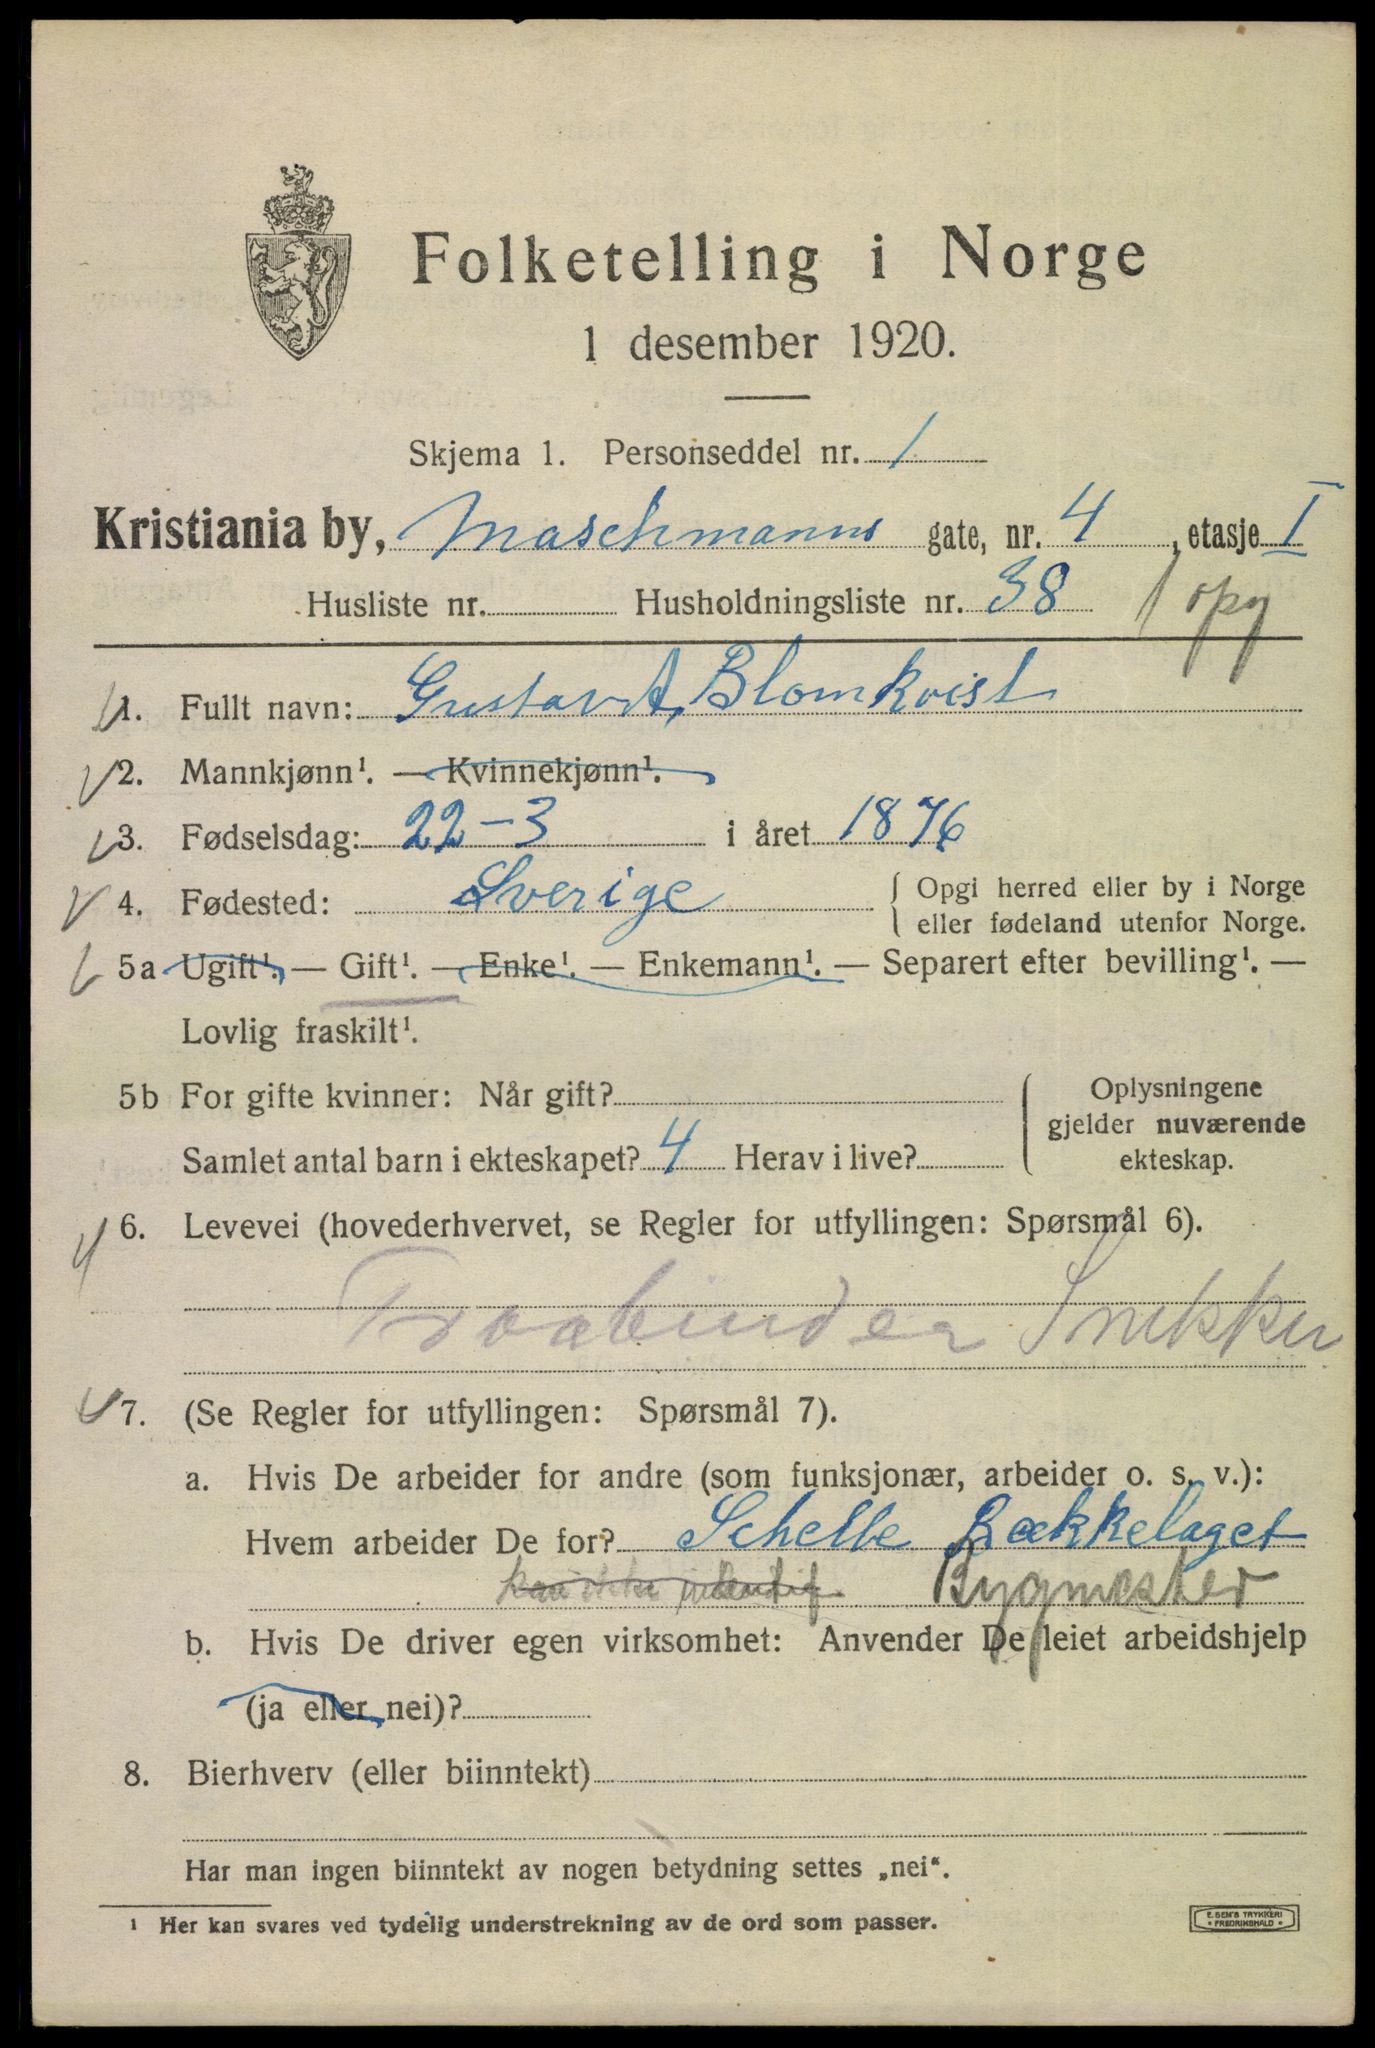 Folketelling i Norge
1 desember 1920.
Skjema 1. Personseddel nr. 1
Kristiania by, Maschmanns gate, nr. 4, etasje I
Husliste nr. Husholdningsliste nr. 38 1 opg
1. Fullt navn: Gustav A. Blomkvist
2. Mannkjønn¹. — Kvinnekjønn¹.
3. Fødselsdag: 22-3 i året 1876
4. Fødested: Sverige { Opgi herred eller by i Norge
eller fødeland utenfor Norge.
5a Ugift¹. — Gift¹. — Enke¹. — Enkemann¹. — Separert efter bevilling¹. —
Lovlig fraskilt¹.
5b For gifte kvinner: Når gift? { Oplysningene
gjelder nuværende
Samlet antal barn i ekteskapet? 4 Herav i live?
ekteskap.
6. Levevei (hovederhvervet, se Regler for utfyllingen: Spørsmål 6).
Snekker
7. (Se Regler for utfyllingen: Spørsmål 7).
a. Hvis De arbeider for andre (som funksjonær, arbeider o. s. v.):
Hvem arbeider De for? Schelle Bækkelaget
kan ikke Bygmester
b. Hvis De driver egen virksomhet: Anvender De leiet arbeidshjelp
(ja eller nei)?
8. Bierhverv (eller biinntekt)
Har man ingen biinntekt av nogen betydning settes „nei“.
¹ Her kan svares ved tydelig understrekning av de ord som passer.
E. SEM'S TRYKKERI
• FREDRIKSHALD •